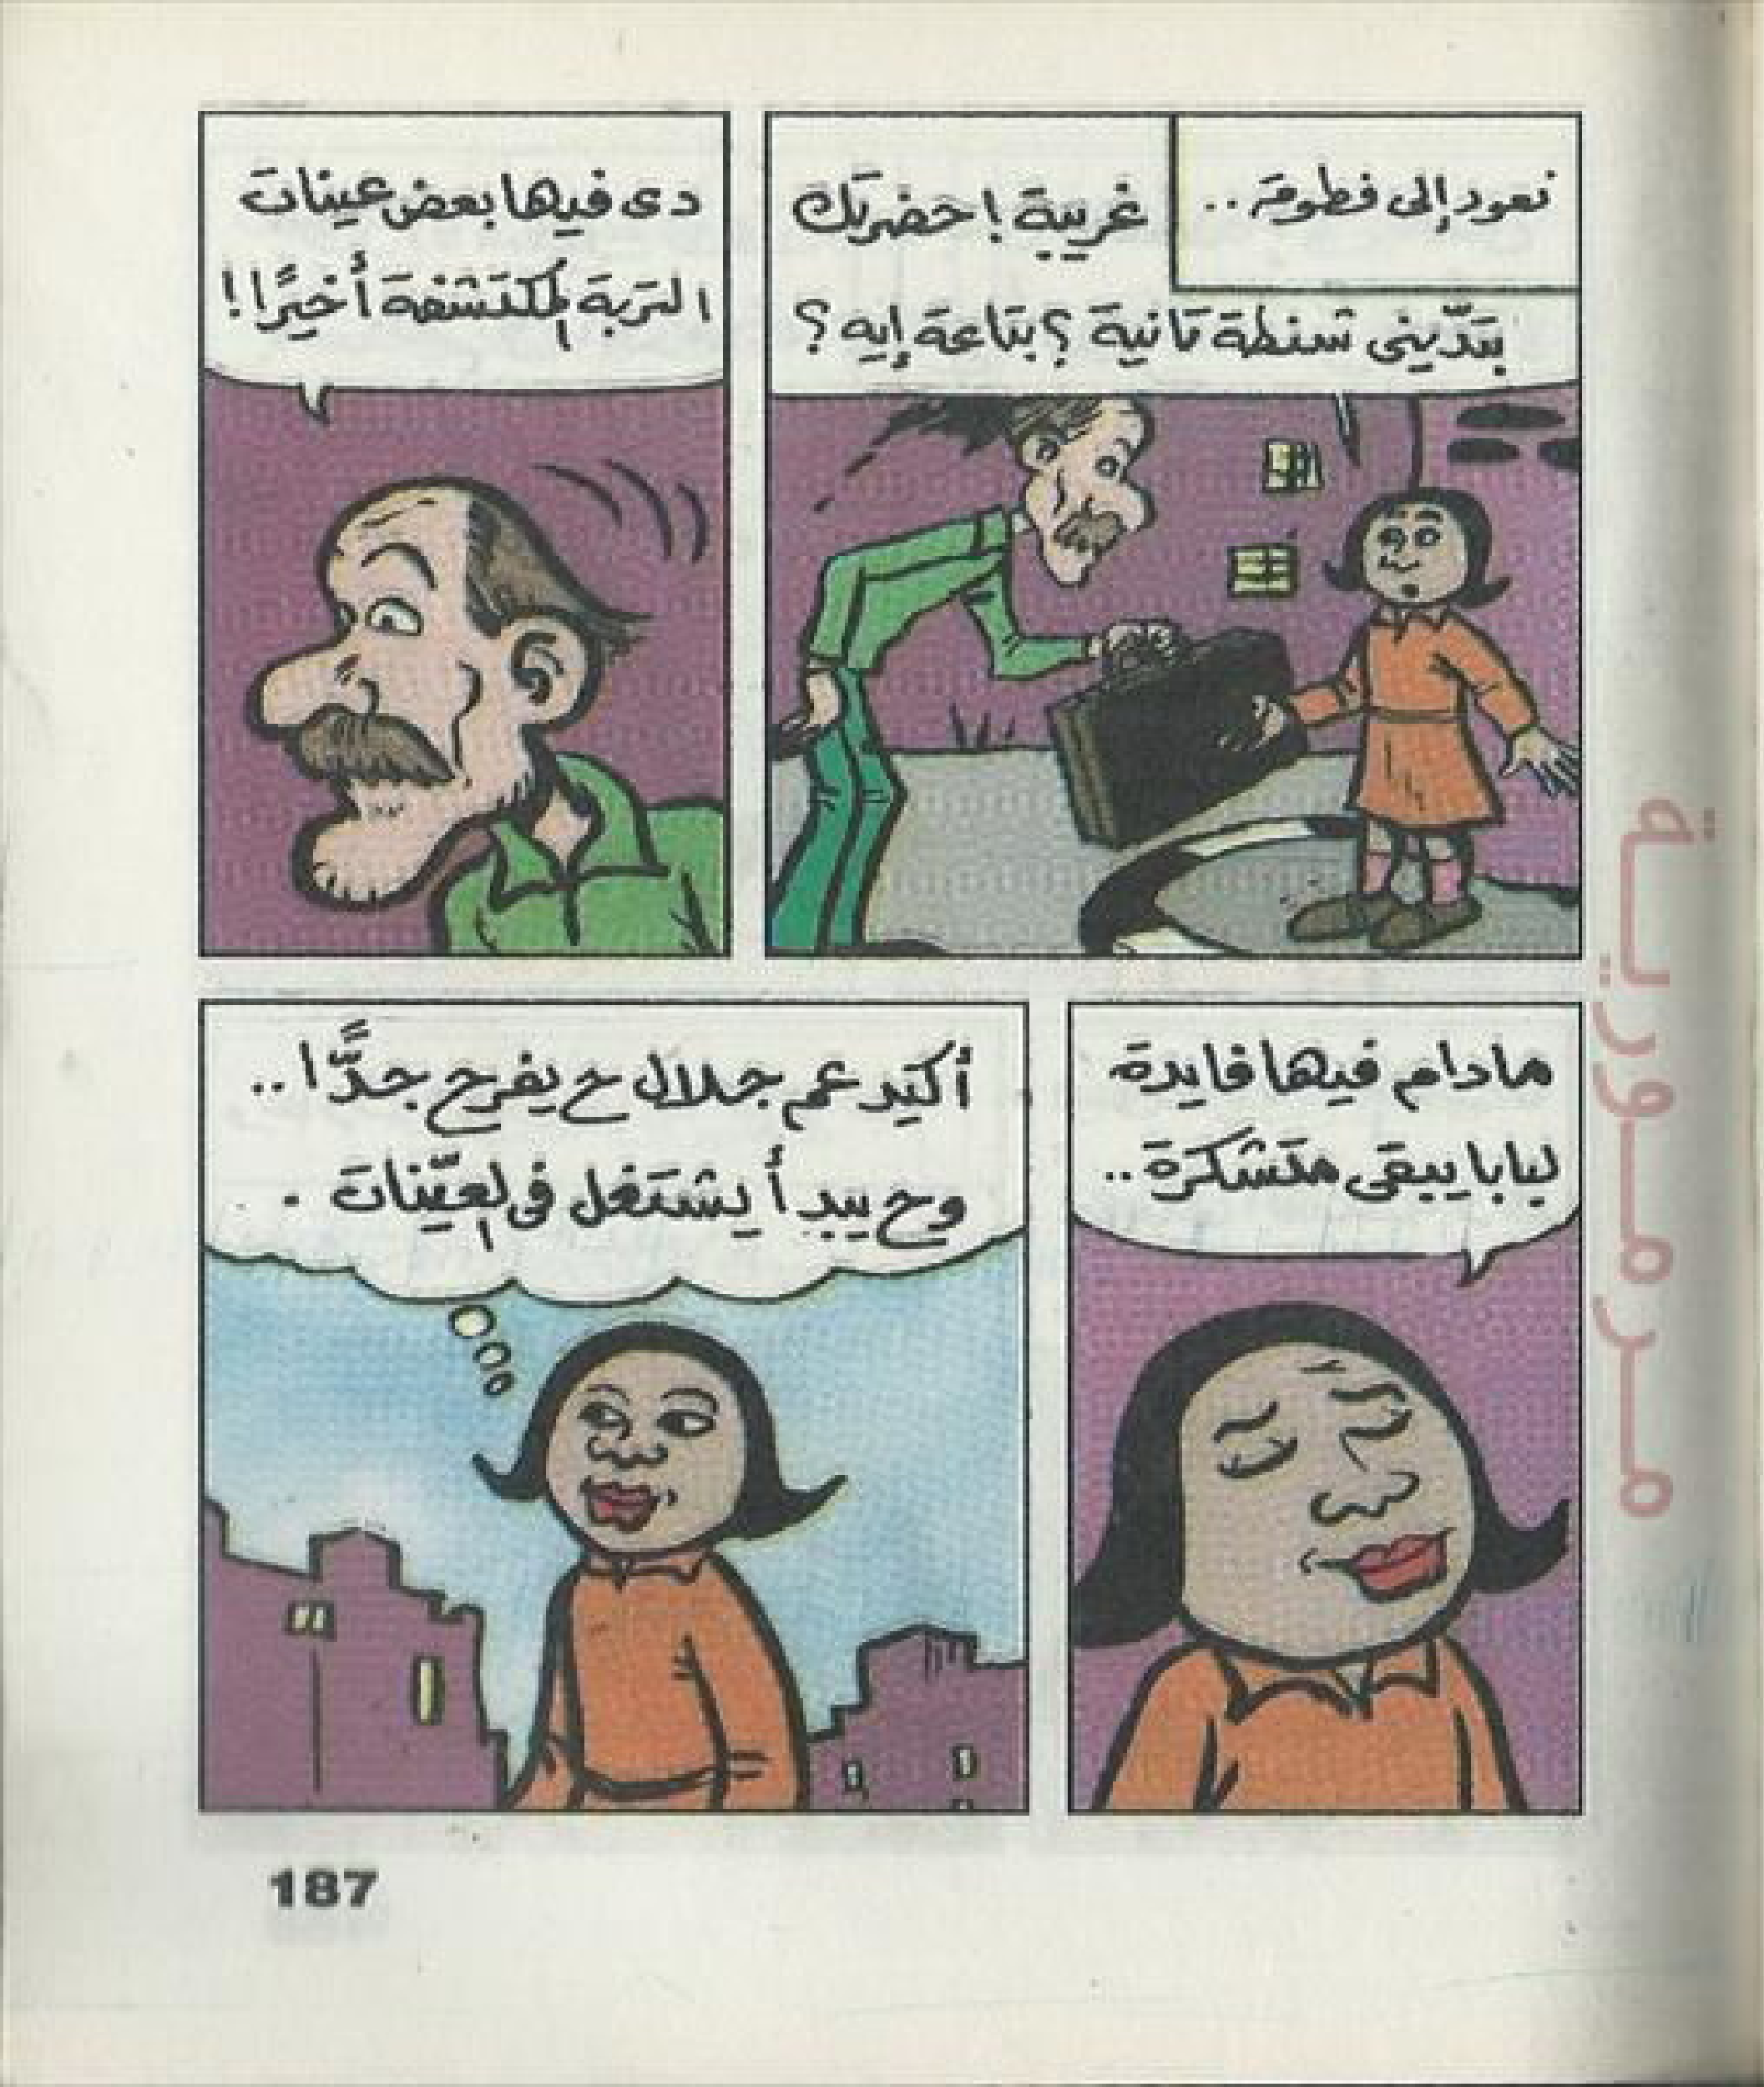 نعود إلى فطومة..
غريبة! حضرتك
بتدّيني شنطة تانية؟ بتاعة إيه؟
دى فيها بعض عينات
التربة المكتشفة أخيرًا!
مادام فيها فايدة
لبابا يبقى متشكرة..
أكيد عم جلال ح يفرح جدًّا..
وح يبدأ يشتغل فى العيّنات.
187
مرمورية